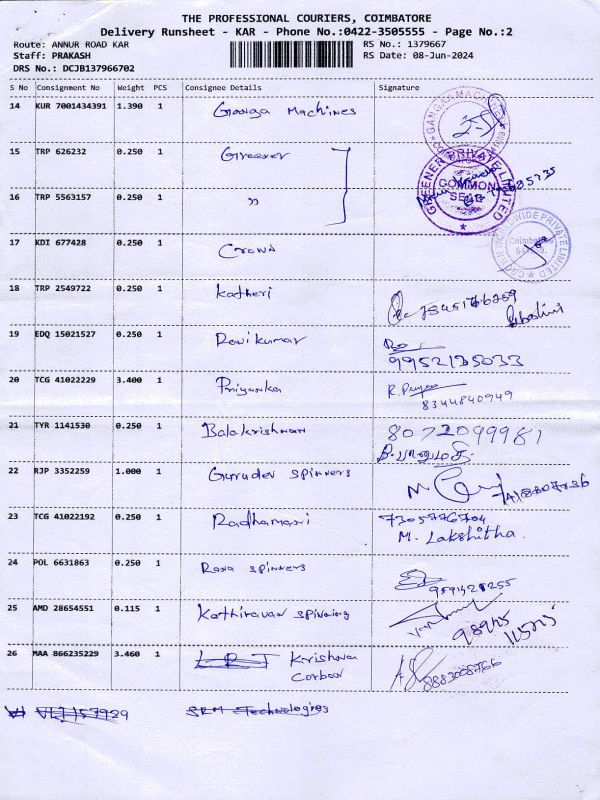 THE PROFESSIONAL COURIERS, COIMBATORE
Delivery Runsheet - KAR - Phone No.:0422-3505555 - Page No.:2
Route: ANNUR ROAD KAR RS No.: 1379667
Staff: PRAKASH RS Date: 08-Jun-2024
DRS No.: DCJB137966702
S No Consignment No Weight PCS Consignee Details Signature
14 KUR 7001434391 1.390 1 Ganga Machines
15 TRP 626232 0.250 1 Greener
GREENER PRIVATE LIMITED
COMMON SEAL
16 TRP 5563157 0.250 1 "
17 KDI 677428 0.250 1 Crown
Coimbatore
18 TRP 2549722 0.250 1 Katheri
19 EDQ 15021527 0.250 1 Devikumar
9952135033
20 TCG 41022229 3.400 1 Priyanka R. Priya
8344840949
21 TYR 1141530 0.250 1 Balakrishnan 8072099981
B. பானுமதி
22 RJP 3352259 1.000 1 Gurudev Spinners
23 TCG 41022192 0.250 1 Radhamani 7305776704
M. Lakshitha.
24 POL 6631863 0.250 1 Rana Spinners
25 AMD 28654551 0.115 1 Kathiravan Spinning
26 MAA 866235229 3.460 1 LRT Krishna
Carbon
8883008766
VLJ157929 SRM Technologies